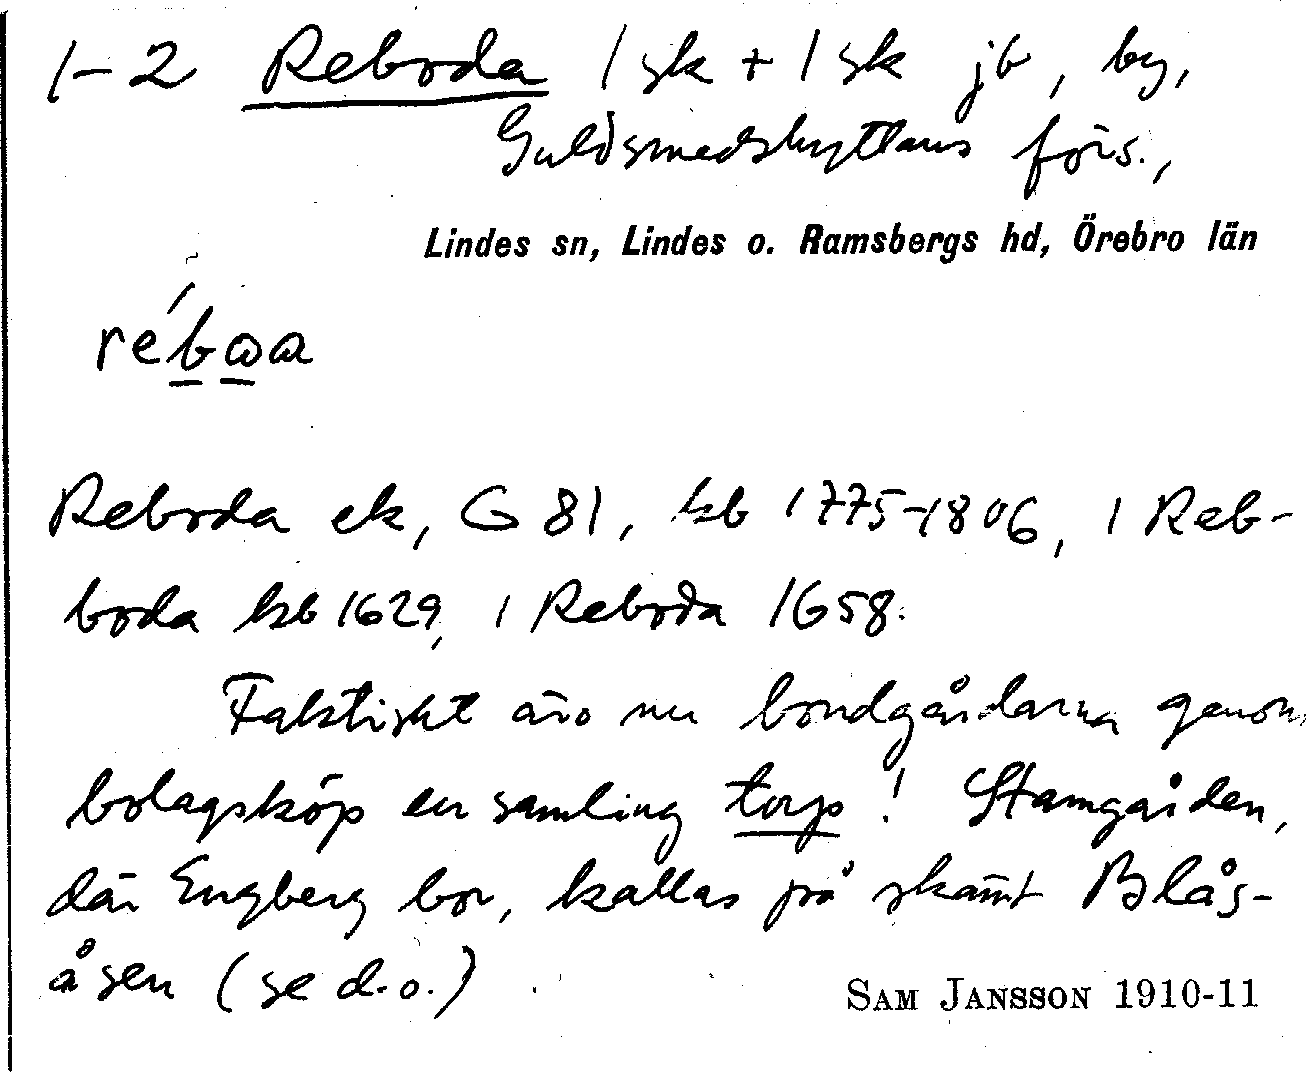 1-2 Reboda 1 sk + 1 sk jb, by,
Guldsmedshyttans förs.,
Lindes sn, Lindes o. Ramsbergs hd, Örebro län
Reboda ek, G 81, kb 1775-1806, 1 Reb-
boda kb 1629, 1 Reboda 1658.
Faktiskt äro nu bondgårdarna genom
bolagsköp en samling torp! Stamgården,
där Engberg bor, kallas på skämt Blås-
åsen (se d.o.).
SAM JANSSON 1910-11